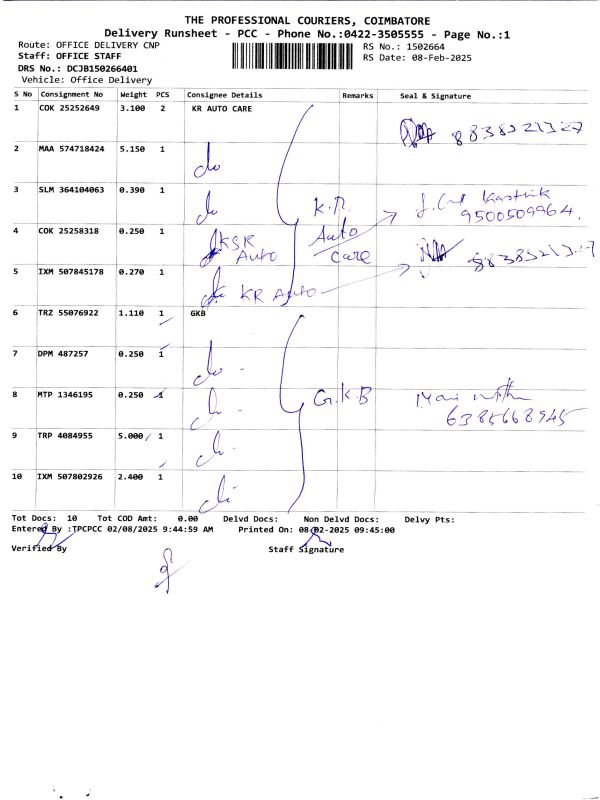 THE PROFESSIONAL COURIERS, COIMBATORE
Delivery Runsheet - PCC - Phone No.:0422-3505555 - Page No.:1
Route: OFFICE DELIVERY CNP RS No.: 1502664
Staff: OFFICE STAFF RS Date: 08-Feb-2025
DRS No.: DCJB150266401
Vehicle: Office Delivery
S No Consignment No Weight PCS Consignee Details Remarks Seal & Signature
1 COK 25252649 3.100 2 KR AUTO CARE
8838521327
2 MAA 574718424 5.150 1 do
3 SLM 364104063 0.390 1 do K.R. Karthik
9500509964.
4 COK 25258318 0.250 1 KSR Auto Auto Care
8838521327
5 IXM 507845178 0.270 1 KR Auto
6 TRZ 55076922 1.110 1 GKB
7 DPM 487257 0.250 1 do
8 MTP 1346195 0.250 1 G.K.B
6385668945
9 TRP 4084955 5.000 1
10 IXM 507802926 2.400 1
Tot Docs: 10 Tot COD Amt: 0.00 Delvd Docs: Non Delvd Docs: Delvy Pts:
Entered By :TPCPCC 02/08/2025 9:44:59 AM Printed On: 08-02-2025 09:45:00
Verified By Staff Signature